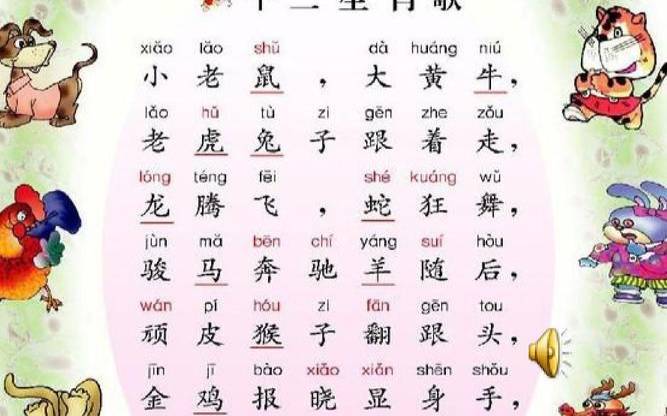 十二生肖歌
xiǎo lǎo shǔ dà huáng niú
小老鼠，大黄牛，
lǎo hǔ tù zi gēn zhe zǒu
老虎兔子跟着走，
lóng téng fēi shé kuáng wǔ
龙腾飞，蛇狂舞，
jùn mǎ bēn chí yáng suí hòu
骏马奔驰羊随后，
wán pí hóu zi fān gēn tou
顽皮猴子翻跟头，
jīn jī bào xiǎo xiǎn shēn shǒu
金鸡报晓显身手，